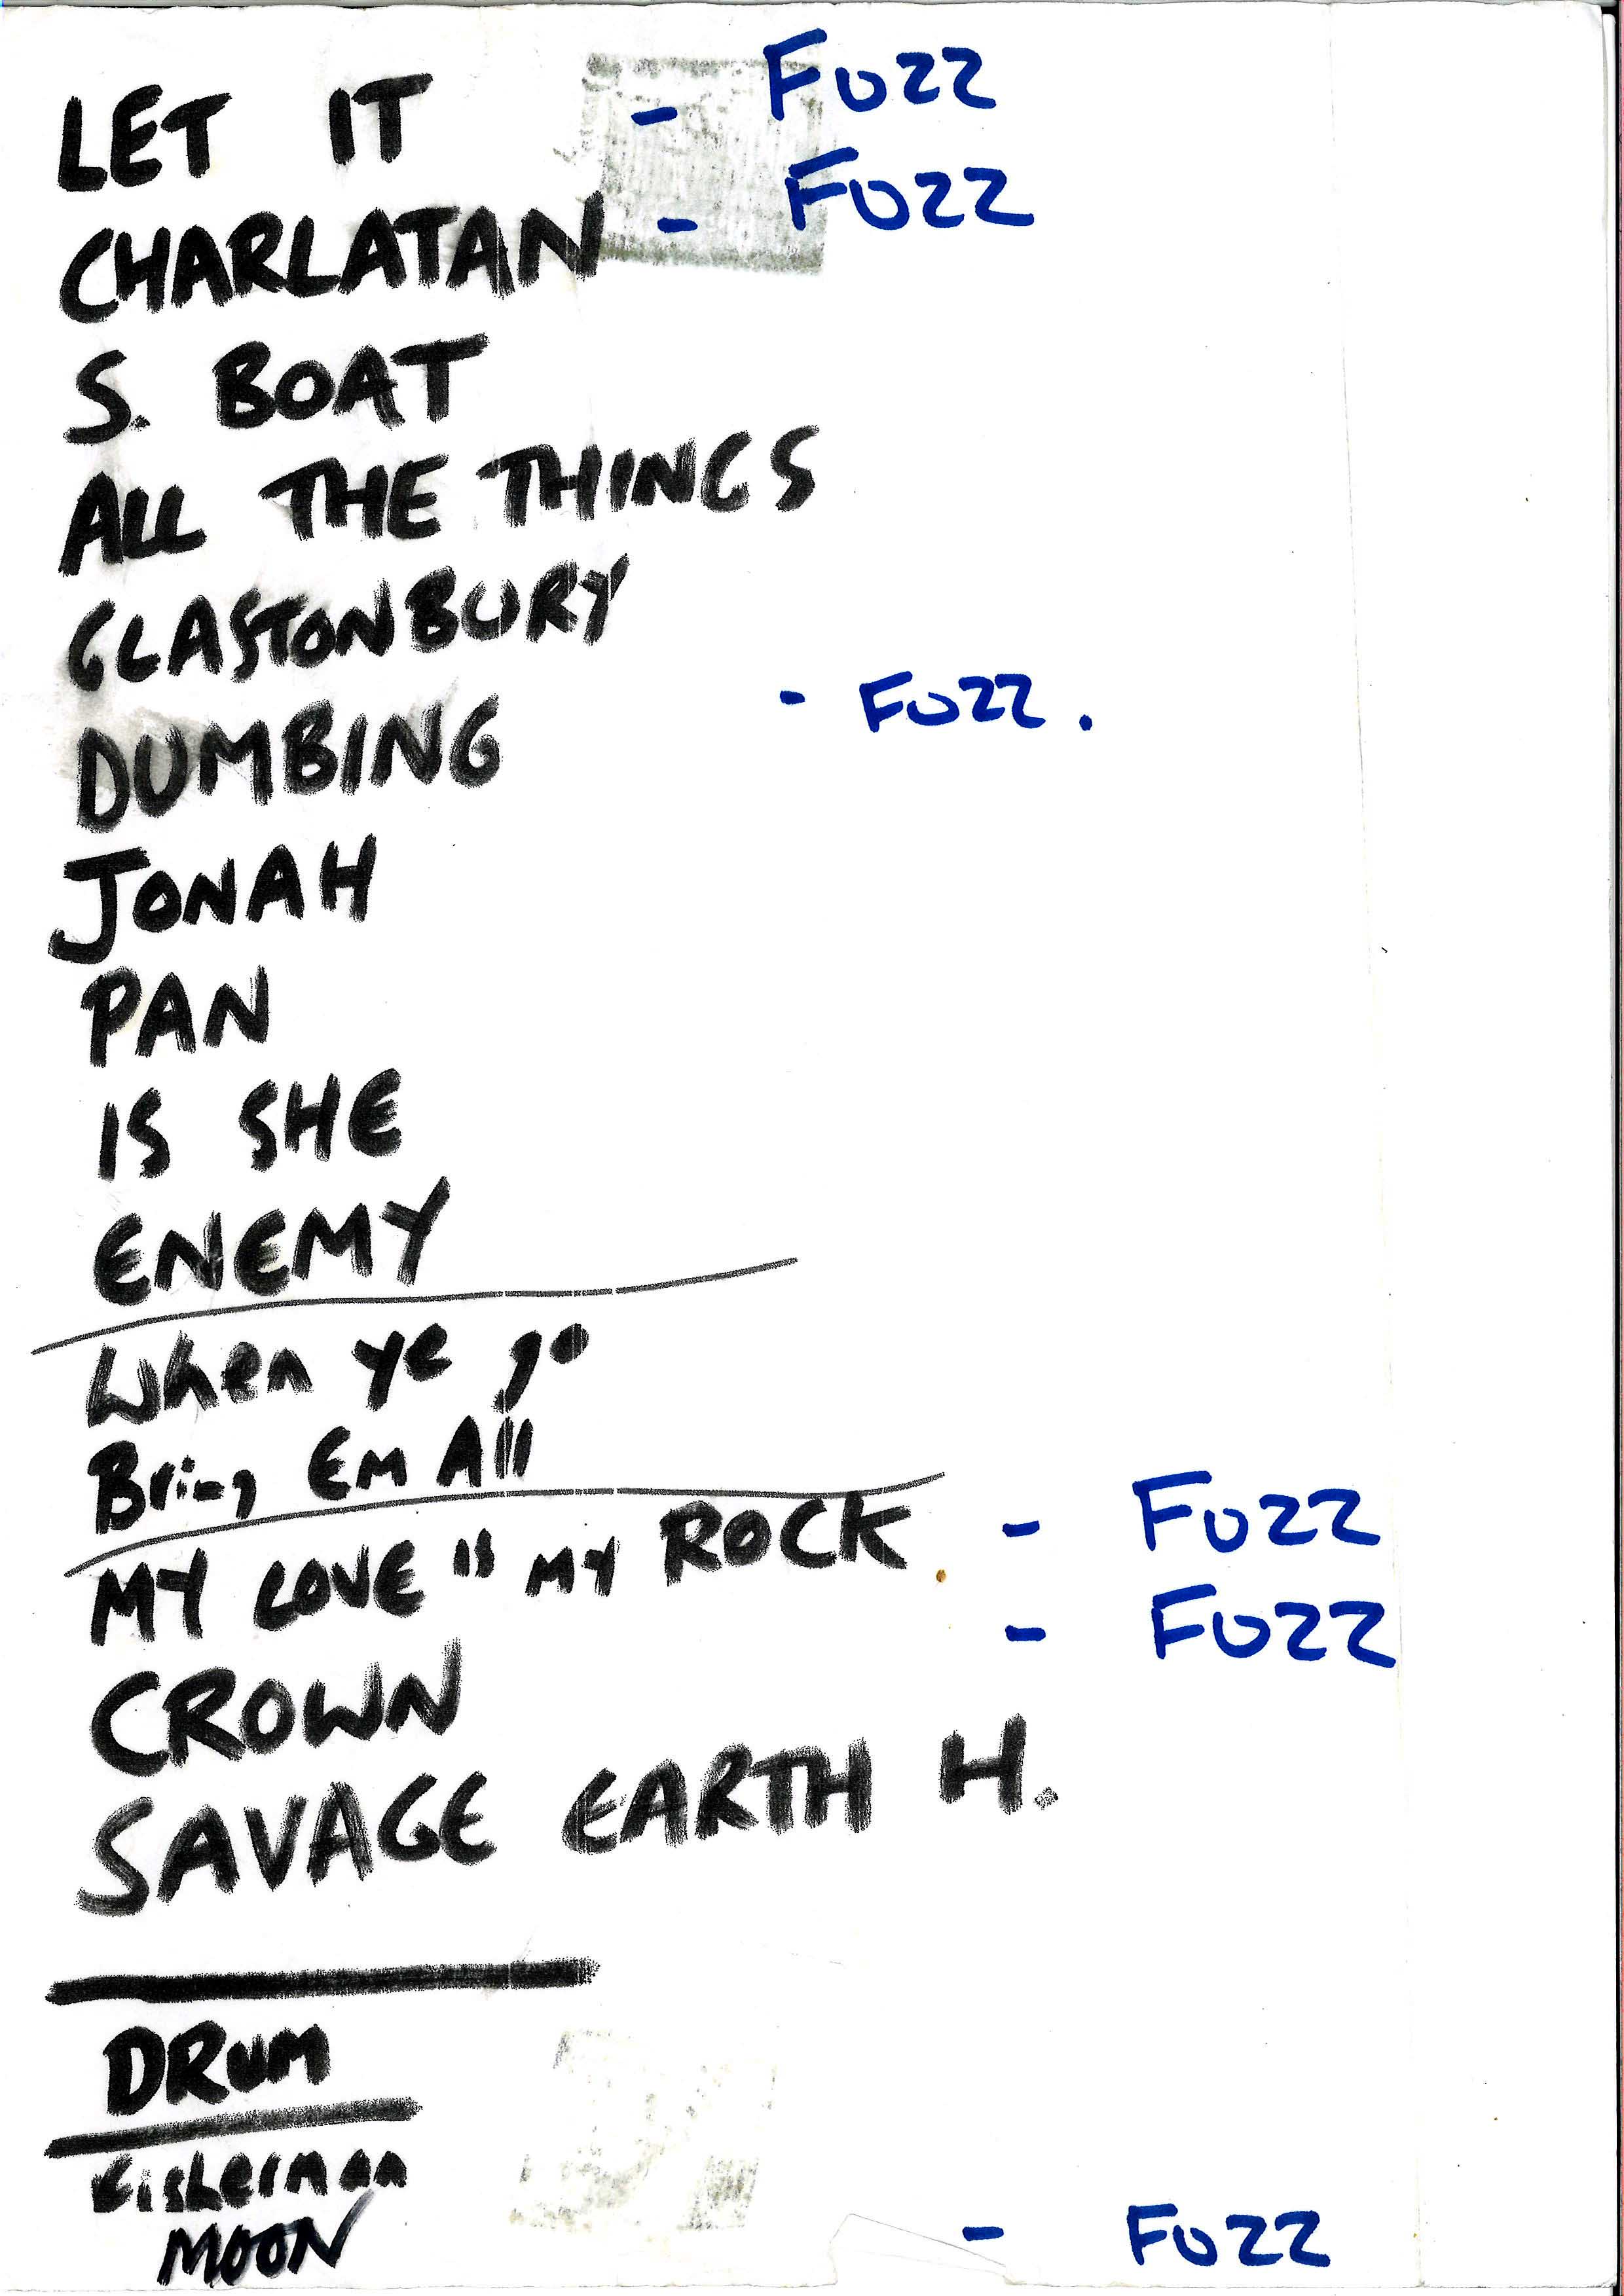 LET IT - FUZZ
CHARLATAN - FUZZ
S. BOAT
ALL THE THINGS
GLASTONBURY
DUMBING - FUZZ.
JONAH
PAN
IS SHE
ENEMY
When ye go
Bring Em All
MY LOVE IS MY ROCK - FUZZ
CROWN - FUZZ
SAVAGE EARTH H.
DRUM
Fisherman
MOON - FUZZ